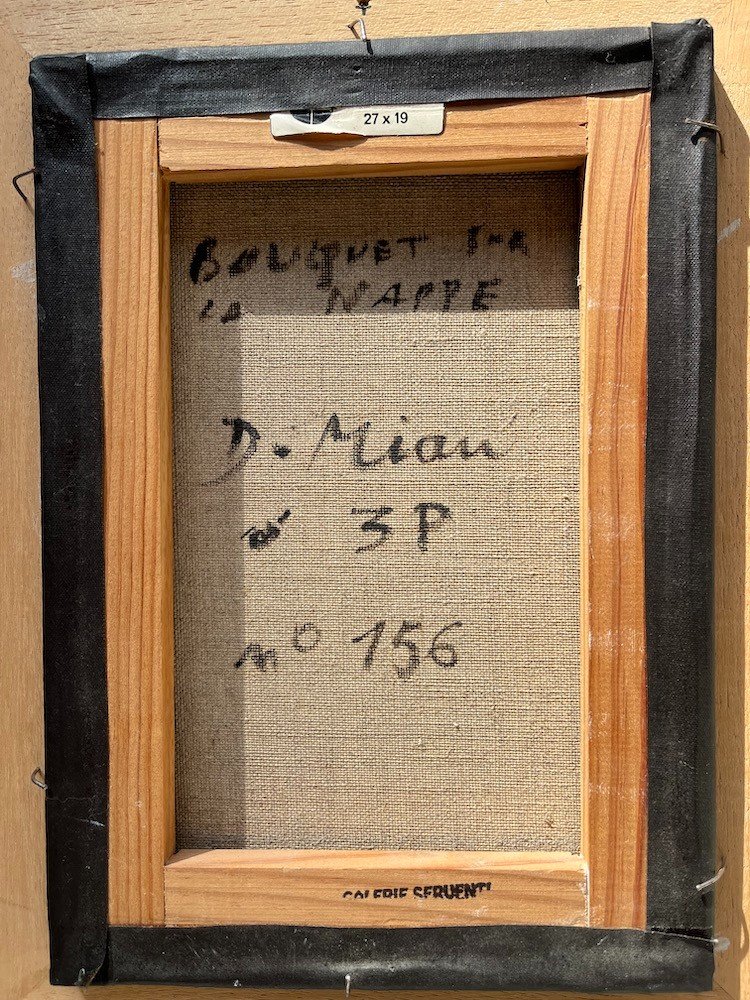 27 x 19
BOUQUET SUR
LA NAPPE
D. Miau
n° 3P
n° 156
GALERIE SERVENTI